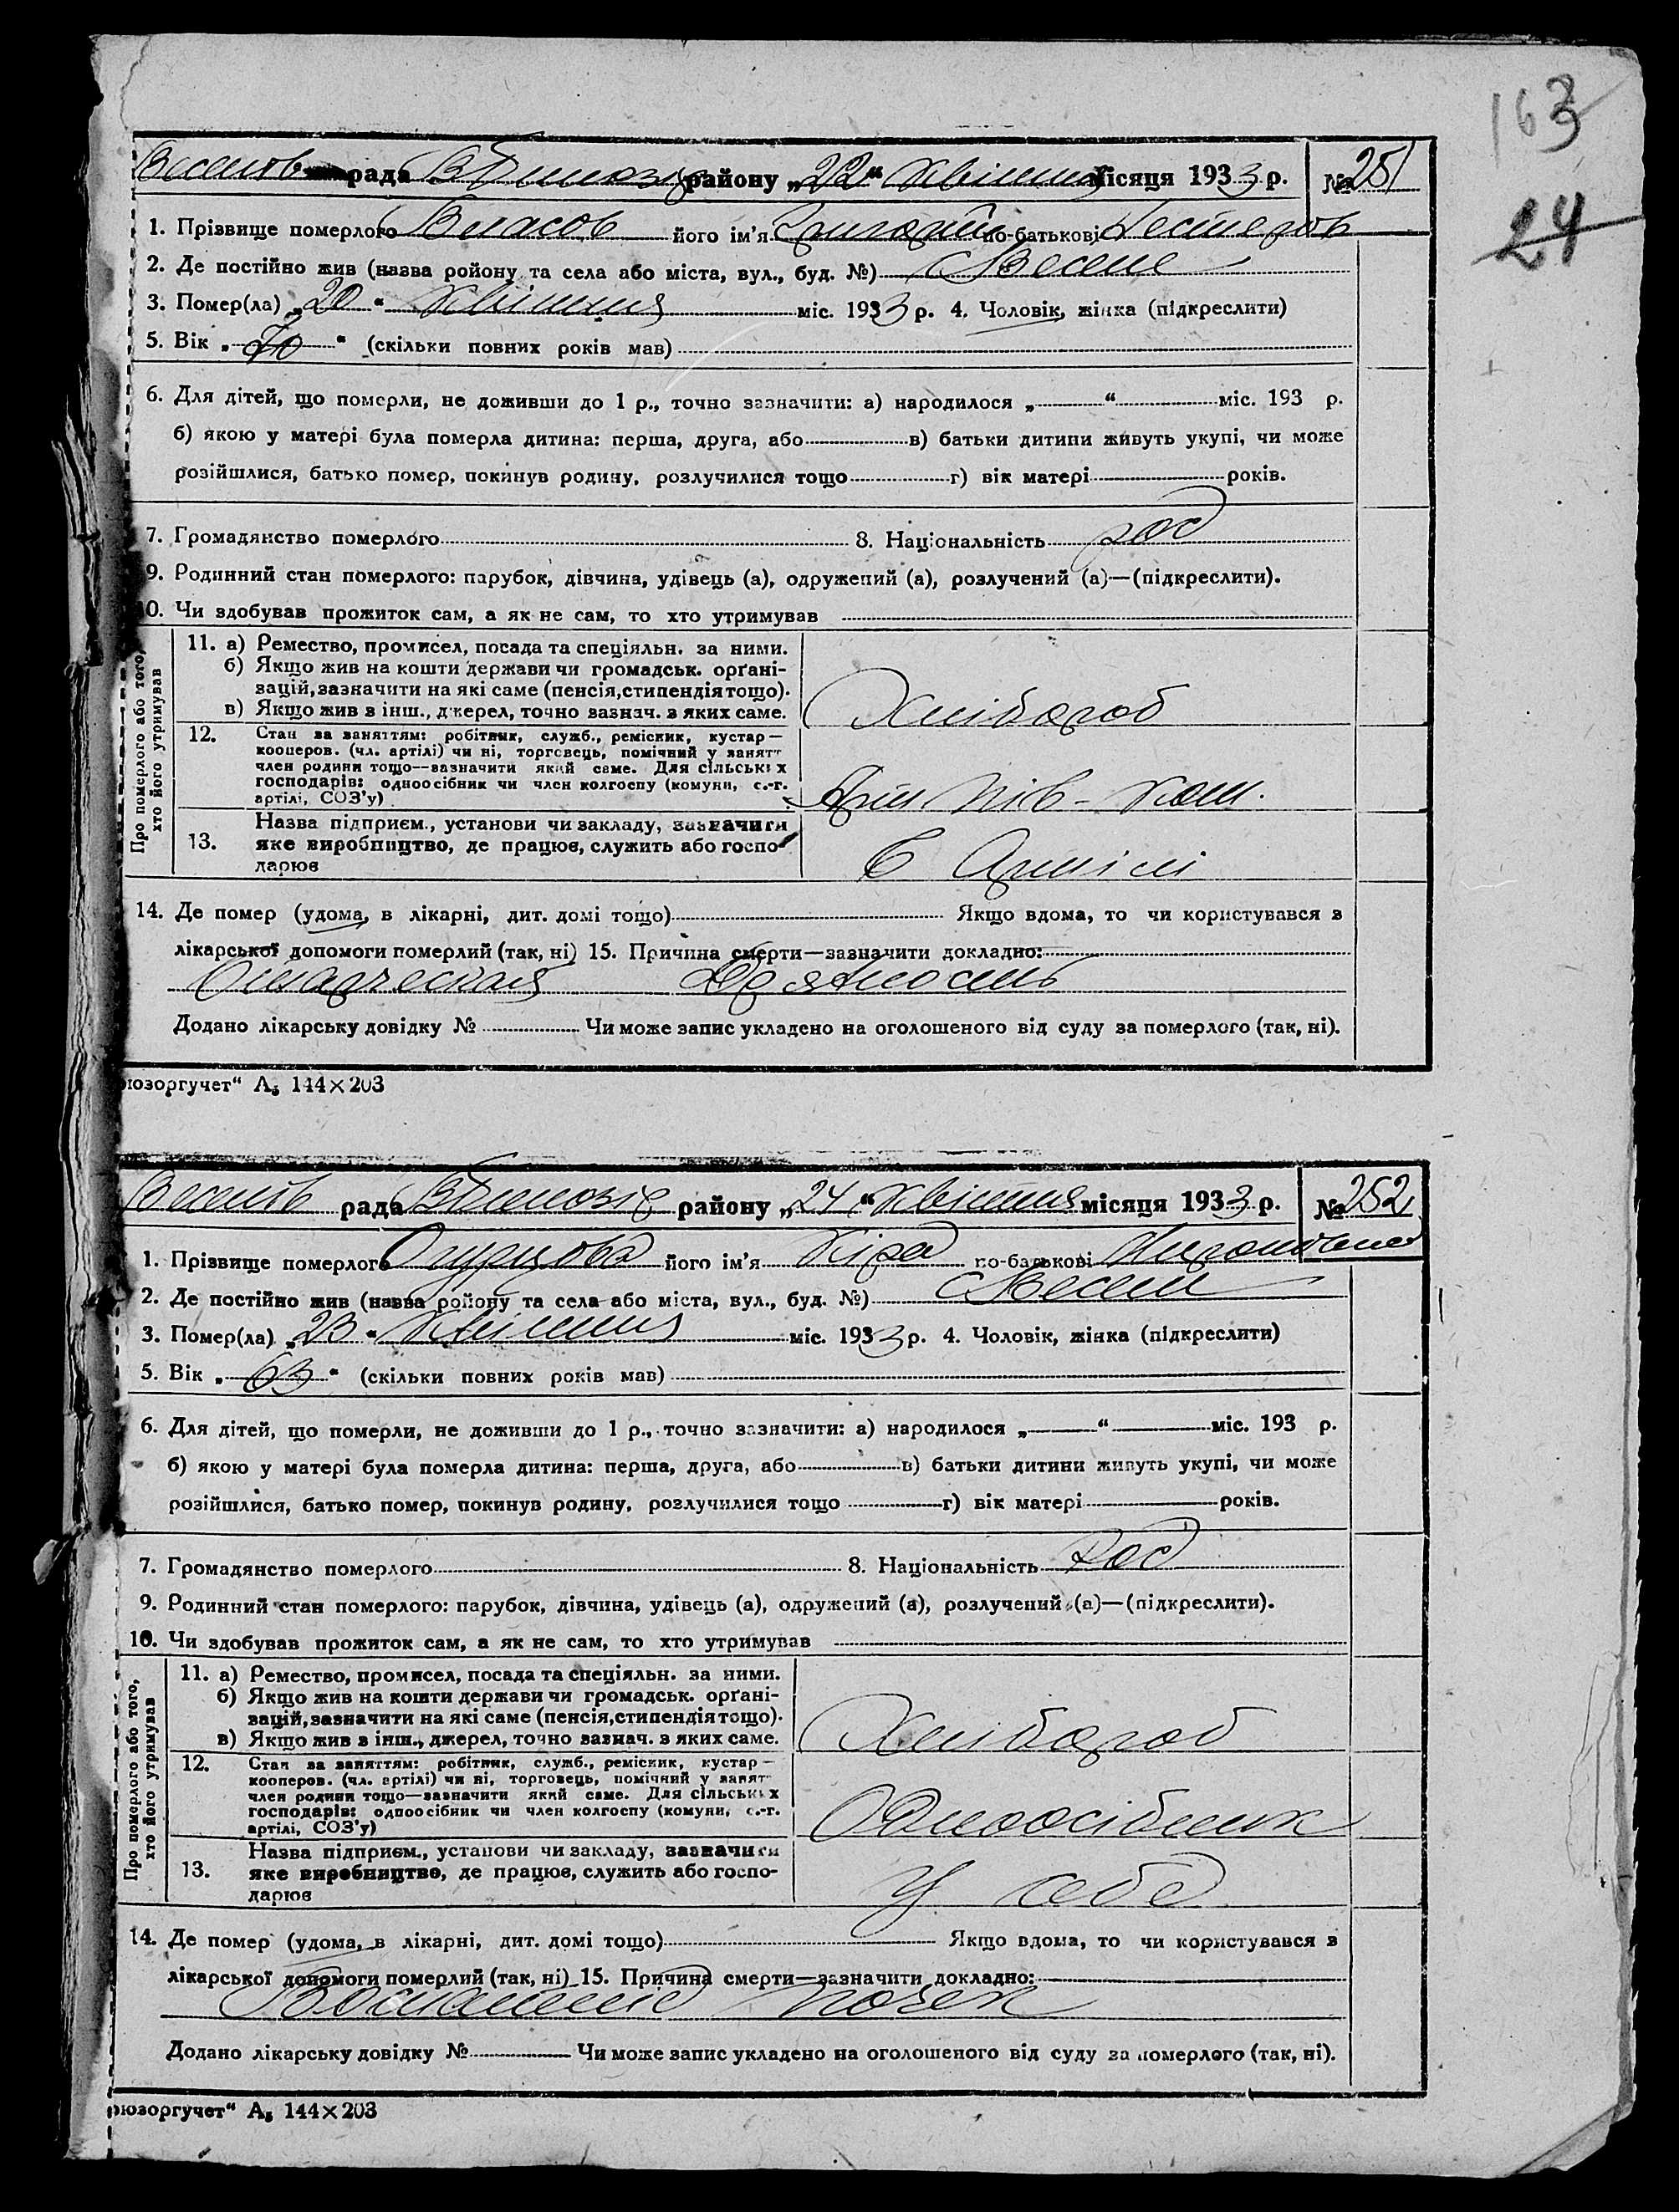 163
24
Веселов рада В Бурлозь району „22“ Квітня місяця 1933 р. № 251
1. Прізвище померлого Власов його ім'я Григорій по-батькові Нестеров
2. Де постійно жив (назва ройону та села або міста, вул., буд. №) с Веселе
3. Помер(ла) „20“ Квітня міс. 1933 р. 4. Чоловік, жінка (підкреслити)
5. Вік „70“ (скільки повних років мав)
6. Для дітей, що померли, не доживши до 1 р., точно зазначити: а) народилося „ “ міс. 193 р.
б) якою у матері була померла дитина: перша, друга, або в) батьки дитини живуть укупі, чи може
розійшлися, батько помер, покинув родину, розлучилися тощо г) вік матері років.
7. Громадянство померлого 8. Національність рос
9. Родинний стан померлого: парубок, дівчина, удівець (а), одружений (а), розлучений (а)—(підкреслити).
10. Чи здобував прожиток сам, а як не сам, то хто утримував
Про померлого або того, хто його утримував
11. а) Ремество, промисел, посада та спеціяльн. за ними.
б) Якщо жив на кошти держави чи громадськ. орґані-
зацій, зазначити на які саме (пенсія, стипендія тощо).
в) Якщо жив з інш., джерел, точно зазнач. з яких саме. Хлібороб
12. Стан за заняттям: робітник, служб., ремісник, кустар—
кооперов. (чл. артілі) чи ні, торговець, помічний у занятт
член родини тощо—зазначити який саме. Для сільських
господарів: одноосібник чи член колгоспу (комуни, с.-г.
артілі, СОЗ'у)
Назва підприєм., установи чи закладу, зазначити
13. яке виробництво, де працює, служить або госпо-
дарює В Артілі
14. Де помер (удома, в лікарні, дит. домі тощо) Якщо вдома, то чи користувався з
лікарської допомоги померлий (так, ні) 15. Причина смерти—зазначити докладно:
Старческая Дряхлость
Додано лікарську довідку № Чи може запис укладено на оголошеного від суду за померлого (так, ні).
юзоргучет“ А5 144×203
Веселов рада району „24“ Квітня місяця 1933 р. № 252
1. Прізвище померлого Огурцова його ім'я Кіра по-батькові
2. Де постійно жив (назва ройону та села або міста, вул., буд. №) с Веселе
3. Помер(ла) „23“ Квітня міс. 1933 р. 4. Чоловік, жінка (підкреслити)
5. Вік „63“ (скільки повних років мав)
6. Для дітей, що померли, не доживши до 1 р., точно зазначити: а) народилося „ “ міс. 193 р.
б) якою у матері була померла дитина: перша, друга, або в) батьки дитини живуть укупі, чи може
розійшлися, батько помер, покинув родину, розлучилися тощо г) вік матері років.
7. Громадянство померлого 8. Національність Рос
9. Родинний стан померлого: парубок, дівчина, удівець (а), одружений (а), розлучений (а)—(підкреслити).
10. Чи здобував прожиток сам, а як не сам, то хто утримував
Про померлого або того, хто його утримував
11. а) Ремество, промисел, посада та спеціяльн. за ними.
б) Якщо жив на кошти держави чи громадськ. орґані-
зацій, зазначити на які саме (пенсія, стипендія тощо).
в) Якщо жив з інш., джерел, точно зазнач. з яких саме. Хлібороб
12. Стан за заняттям: робітник, служб., ремісник, кустар—
кооперов. (чл. артілі) чи ні, торговець, помічний у занят
член родини тощо—зазначити який саме. Для сільських
господарів: одноосібник чи член колгоспу (комуни, с.-г.
артілі, СОЗ'у) Одноосібник
Назва підприєм., установи чи закладу, зазначити
13. яке виробництво, де працює, служить або госпо-
дарює У себе
14. Де помер (удома, в лікарні, дит. домі тощо) Якщо вдома, то чи користувався з
лікарської допомоги померлий (так, ні) 15. Причина смерти—зазначити докладно:
Воспаление почек
Додано лікарську довідку № Чи може запис укладено на оголошеного від суду за померлого (так, ні).
юзоргучет“ А5 144×203